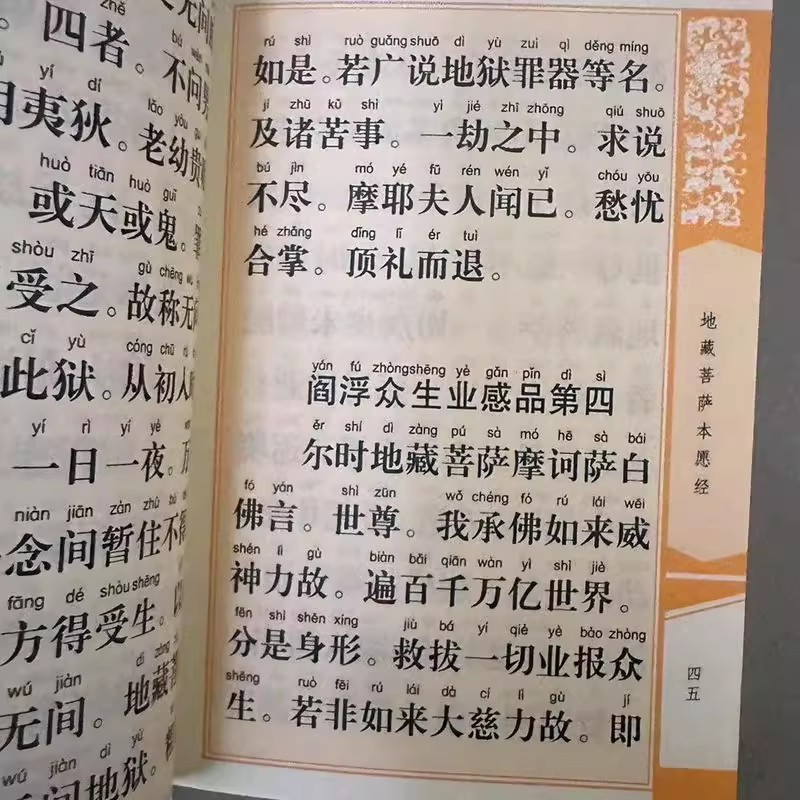 zhě
四者。不问男
yí dí lǎo yòu
夷狄。老幼贵
huò tiān huò guǐ
或天或鬼。
shòu zhī gù chēng wú
受之。故称无间
cǐ yù cóng chū
此狱。从初人
yí rì yí yè
一日一夜。万
niàn jiān zàn zhù bù
念间暂住不得
fāng dé shòu shēng
方得受生。以
wú jiàn dì zàng
无间。地藏菩
wú jiàn dì yù
无间地狱。
rú shì ruò guǎng shuō dì yù zuì qì děng míng
如是。若广说地狱罪器等名。
jí zhū kǔ shì yì jié zhī zhōng qiú shuō
及诸苦事。一劫之中。求说
bú jìn mó yé fū rén wén yǐ chóu yōu
不尽。摩耶夫人闻已。愁忧
hé zhǎng dǐng lǐ ér tuì
合掌。顶礼而退。
yán fú zhòng shēng yè gǎn pǐn dì sì
阎浮众生业感品第四
ěr shí dì zàng pú sà mó hē sà bái
尔时地藏菩萨摩诃萨白
fó yán shì zūn wǒ chéng fó rú lái wēi
佛言。世尊。我承佛如来威
shén lì gù biàn bǎi qiān wàn yì shì jiè
神力故。遍百千万亿世界。
fēn shì shēn xíng jiù bá yí qiè yè bào zhòng
分是身形。救拔一切业报众
shēng ruò fēi rú lái dà cí lì gù jí
生。若非如来大慈力故。即
地藏菩萨本愿经
四五